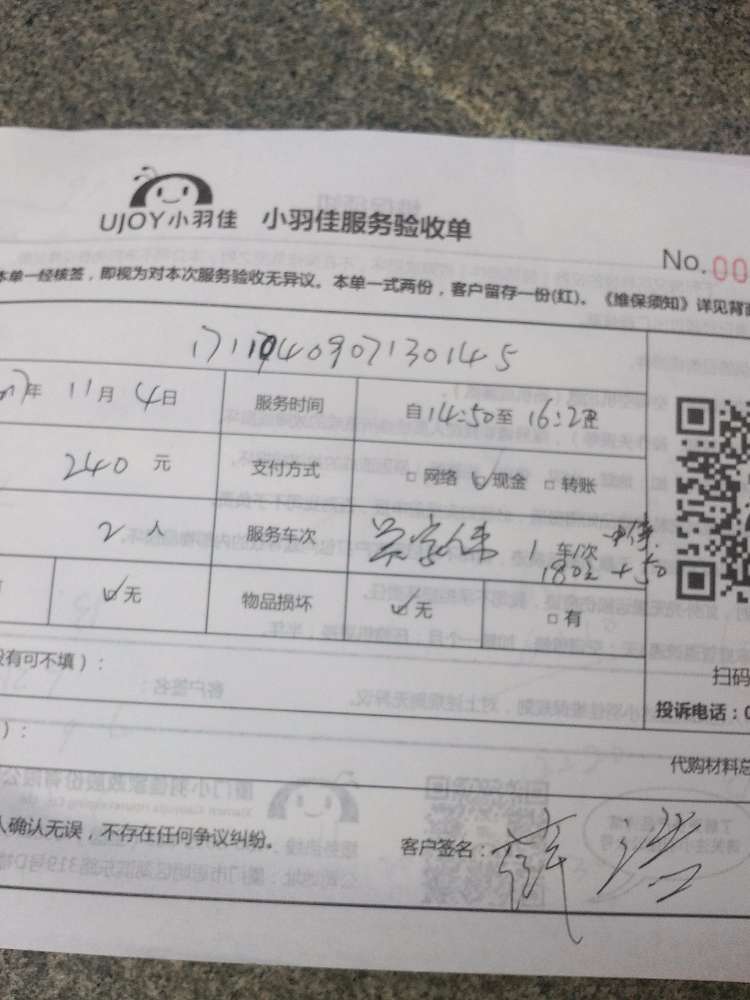 UJOY小羽佳 小羽佳服务验收单
No.00
本单一经核签，即视为对本次服务验收无异议。本单一式两份，客户留存一份(红)。《维保须知》详见背面
年 11月 4日 服务时间 自14:50至
240 元 支付方式 网络 现金 转账
2 人 服务车次 1 车/次
180 + 50
无 物品损坏 无 有
没有可不填）：
扫码
投诉电话：0
）：
代购材料总
人确认无误，不存在任何争议纠纷。 客户签名：